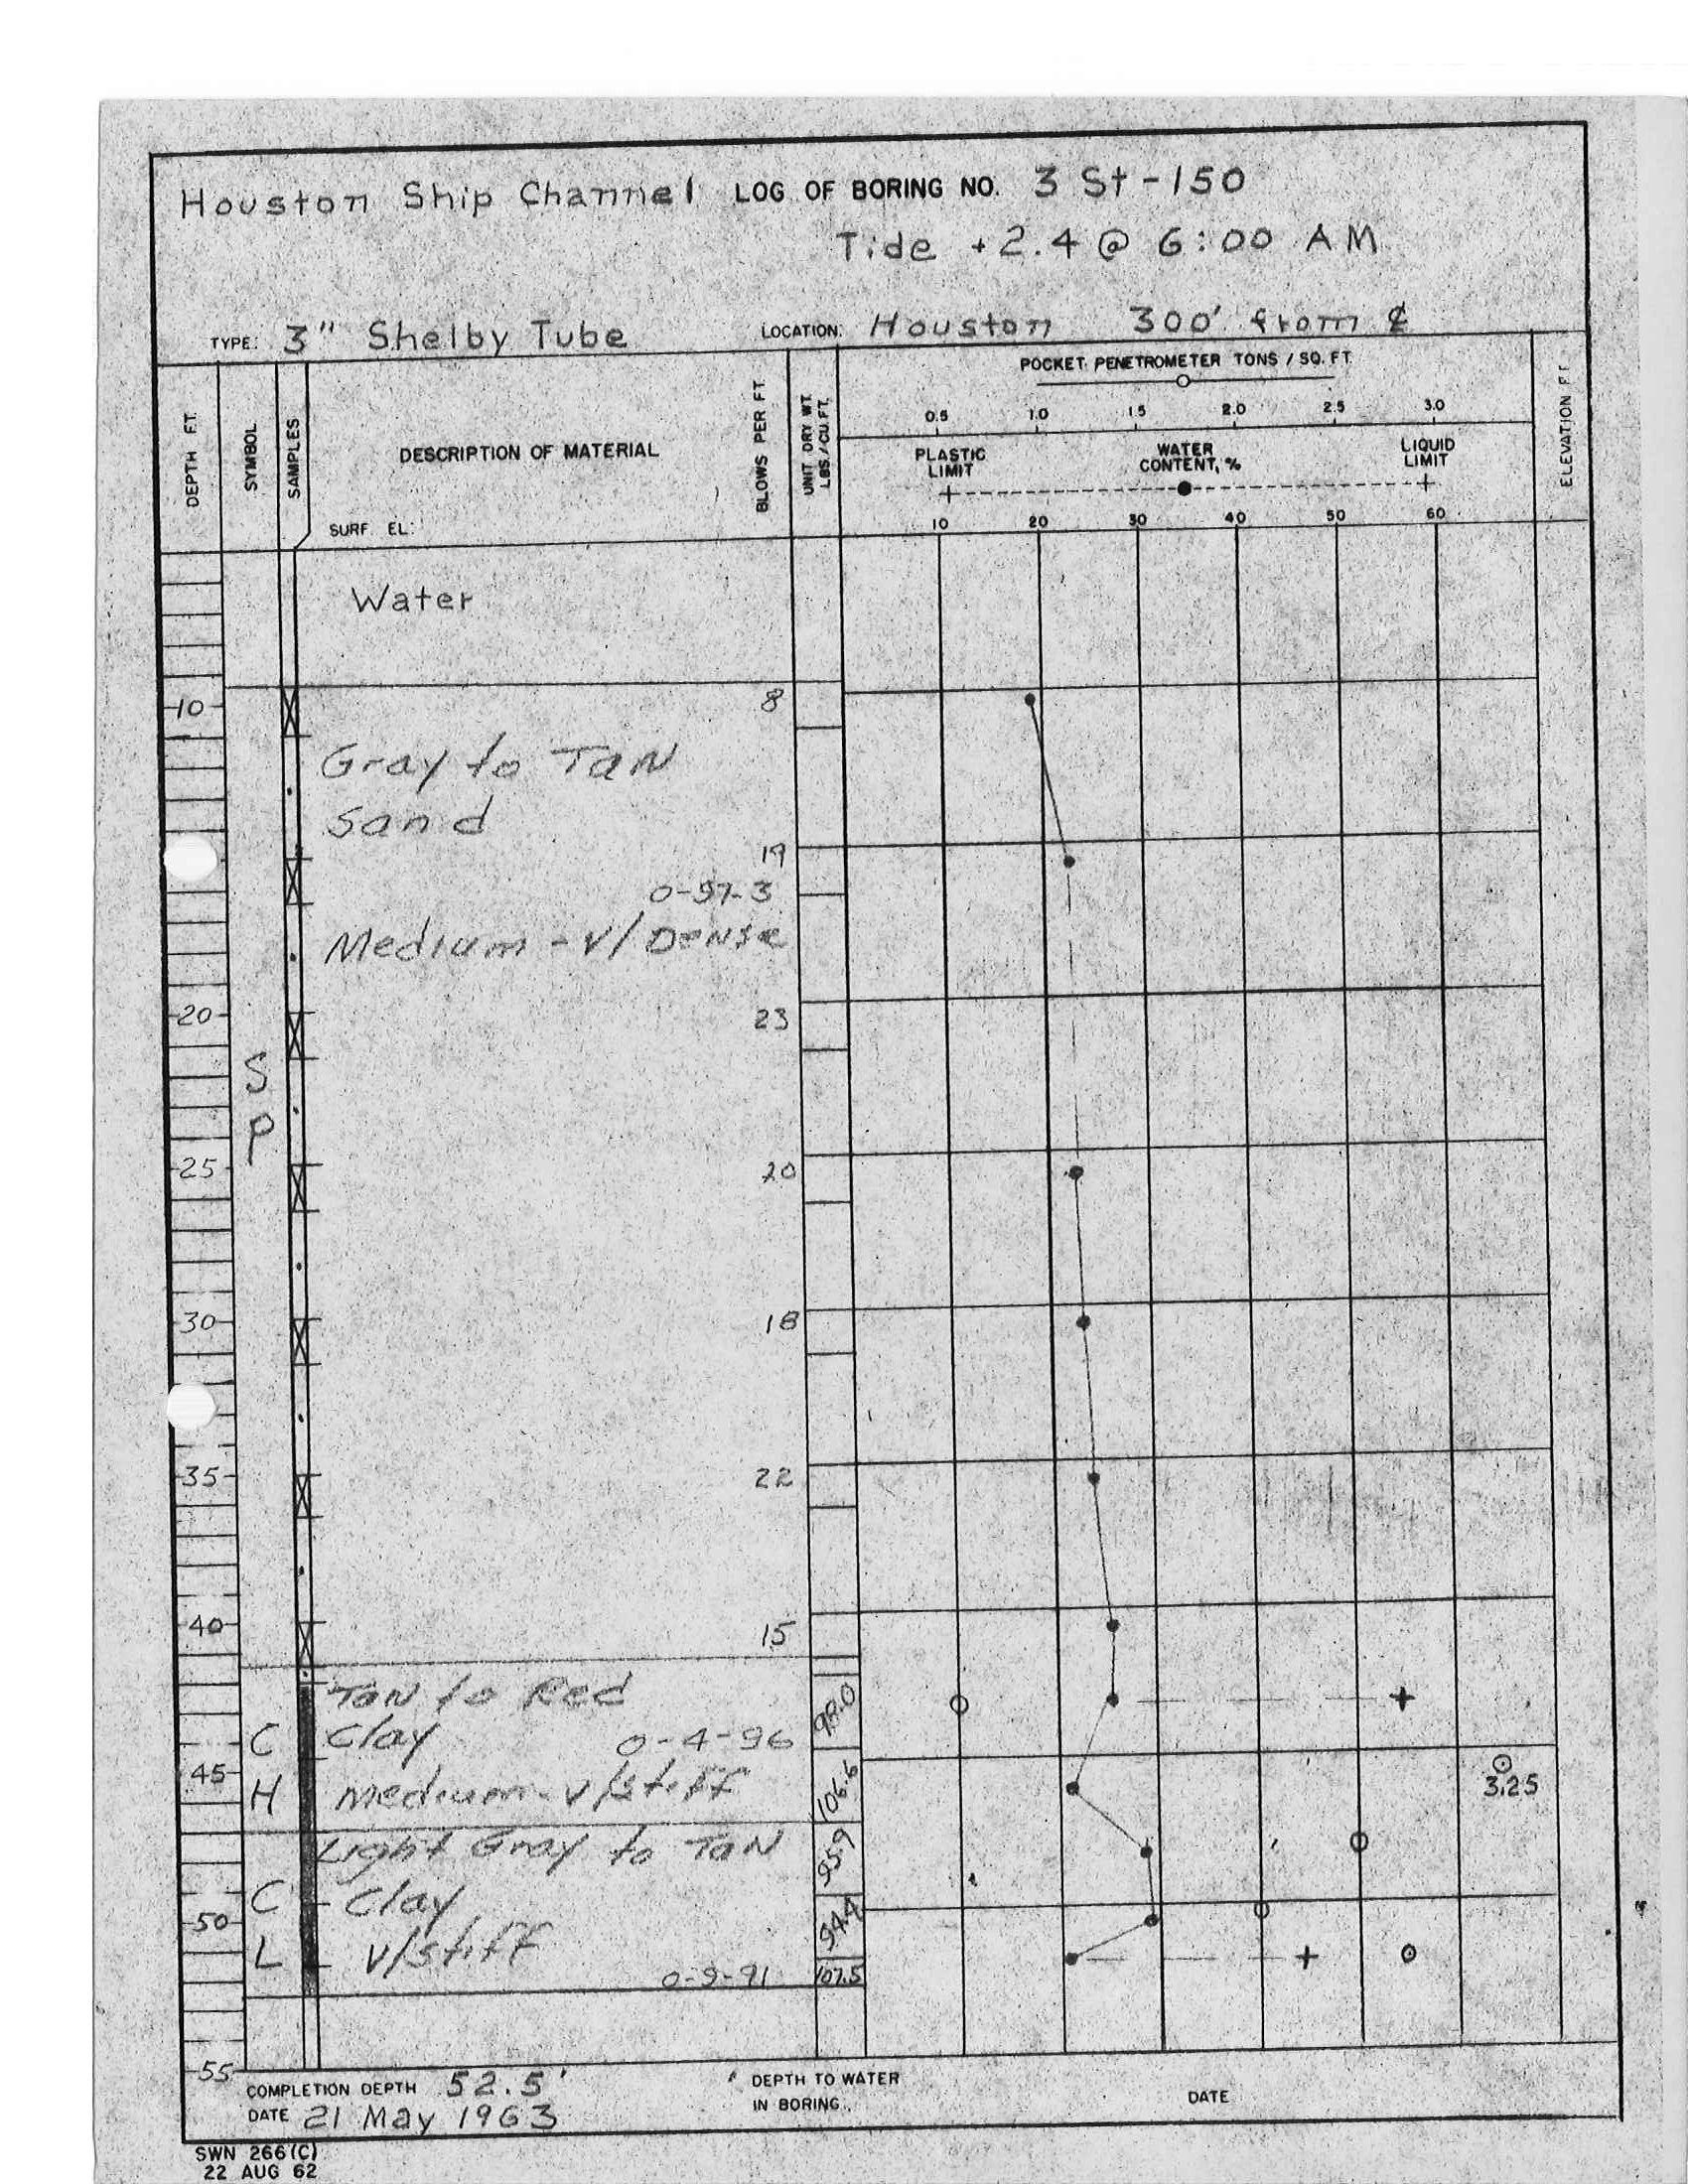 Houston Ship Channel LOG OF BORING NO. 3 St-150
Tide +2.4 @ 6:00 AM
TYPE: 3" Shelby Tube LOCATION: Houston 300' from ℄
DEPTH FT.
SYMBOL
SAMPLES
DESCRIPTION OF MATERIAL
SURF. EL:
BLOWS PER FT
UNIT DRY WT. LBS./CU.FT.
POCKET PENETROMETER TONS / SQ. FT.
0.5 1.0 1.5 2.0 2.5 3.0
PLASTIC LIMIT
WATER CONTENT, %
LIQUID LIMIT
10 20 30 40 50 60
ELEVATION FT.
Water
10 8
Gray to Tan
Sand
19
0-97-3
Medium - v/Dense
20 23
S
P
25 20
30 18
35 22
40 15
Tan to Red 99.0
C Clay 0-4-96
45 106.6 3.25
H Medium - v/stiff
Light Gray to Tan 95.9
C Clay
50 94.4
L v/stiff
0-9-91 107.5
55
COMPLETION DEPTH 52.5'
DATE 21 May 1963
DEPTH TO WATER
IN BORING
DATE
SWN 266(C)
22 AUG 62